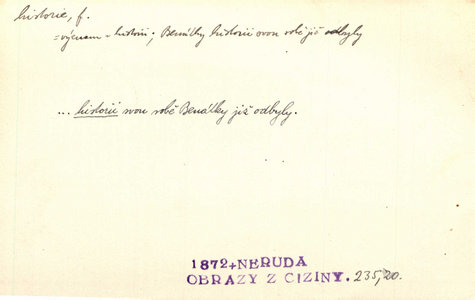 historie, f.
= význam v historii; Benátky historii svou robě již odbyly
... historii svou robě Benátky již odbyly.
1872+NERUDA
OBRAZY Z CIZINY. 235,20.